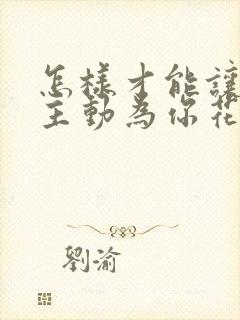 怎樣才能讓
主動為你花
劉渝